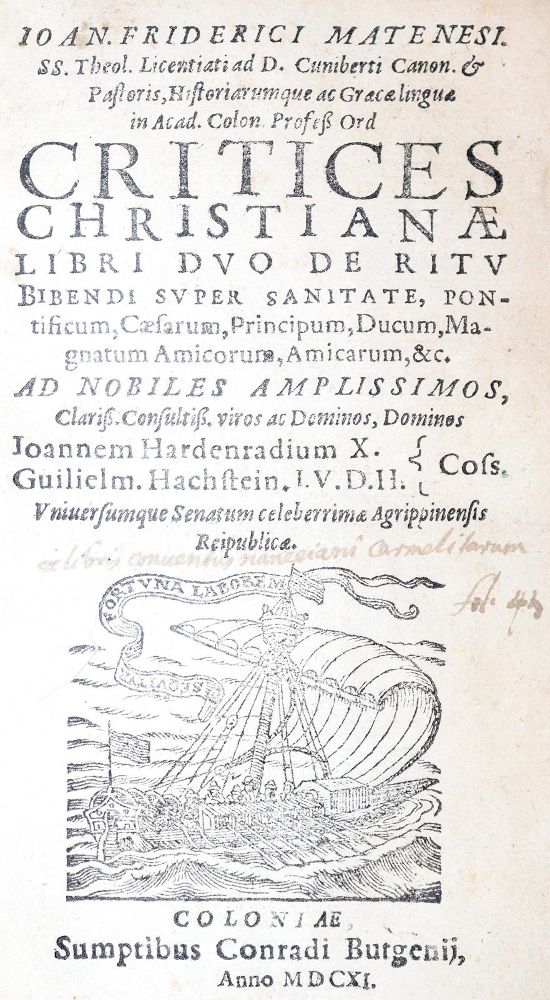 IOAN. FRIDERICI MATENESI.
SS. Theol. Licentiati ad D. Cuniberti Canon. &
Paſtoris, Hiſtoriarumque ac Græcæ linguæ
in Acad. Colon. Profeß Ord
CRITICES
CHRISTIANÆ
LIBRI DVO DE RITV
BIBENDI SVPER SANITATE, PON-
tificum, Cæſarum, Principum, Ducum, Ma-
gnatum Amicorum, Amicarum, &c.
AD NOBILES AMPLISSIMOS,
Clariß. Conſultiß. viros ac Dominos, Dominos
Joannem Hardenradium X.
Guilielm. Hachſtein. I.V.D.H. } Coſs.
Vniuerſumque Senatum celeberrimæ Agrippinenſis
Reipublicæ.
ex libris conventus nanceiani Carmelitarum
FORTVNA LABOREM
COLONIAE,
Sumptibus Conradi Butgenij,
Anno MDCXI.